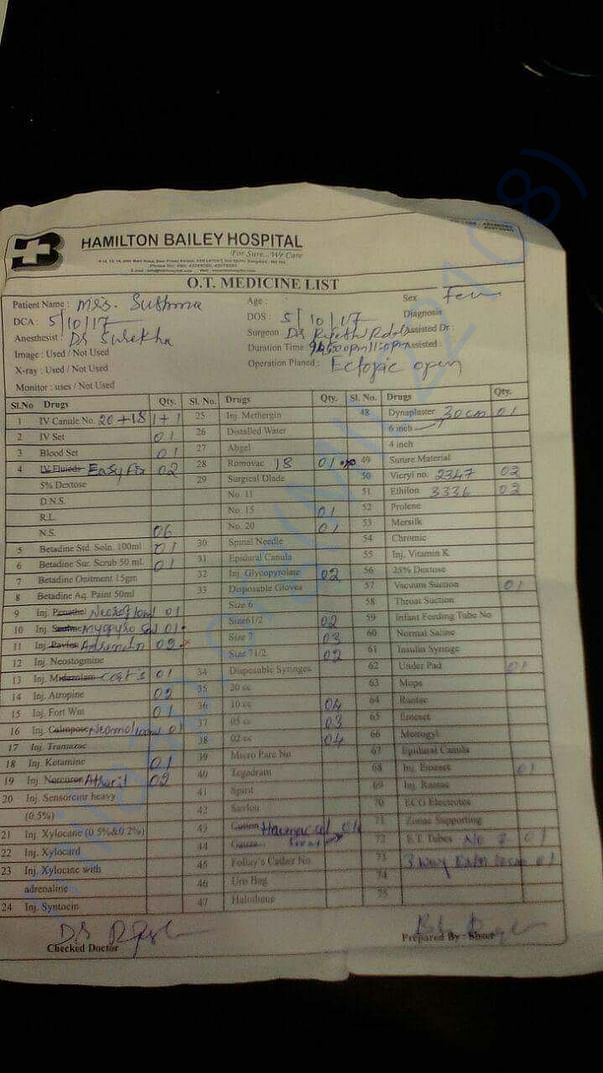 HAMILTON BAILEY HOSPITAL
For Sure...We Care
O.T. MEDICINE LIST
Patient Name : Mrs. Sushma
Age :
Sex Fem
DCA : 5/10/17
DOS : 5/10/17
Diagnosis
Anesthesist : Dr Surekha
Surgeon Dr
Assisted Dr :
Image : Used / Not Used
Duration Time :
Assisted :
X-ray : Used / Not Used
Operation Planed : Ectopic open
Monitor : uses / Not Used
Sl.No Drugs Qty. Sl. No. Drugs Qty. Sl. No. Drugs Qty.
1 IV Canule No. 20+18 1+1
2 IV Set 01
3 Blood Set 01
4 IV Fluieds Easy Fix 02
5% Dextose
D.N.S.
R.L.
N.S. 06
5 Betadine Std. Soln. 100ml 01
6 Betadine Sur. Scrub 50 ml. 01
7 Betadine Onitment 15gm
8 Betadine Aq. Paint 50ml
9 Inj. 01
10 Inj. Myopyro 01
11 Inj. Adrenaln 02
12 Inj. Neostogmine
13 Inj. 01
14 Inj. Atropine 02
15 Inj. Fort Win 01
16 Inj. 01
17 Inj. Tramazac
18 Inj. Ketamine 01
19 Inj. Norcuron 02
20 Inj. Sensorcine heavy
(0.5%)
21 Inj. Xylocane (0 5%&0.2%)
22 Inj. Xylocard
23 Inj. Xylocine with
adrenaline
24 Inj. Syntocin
25 Inj. Methergin
26 Distalled Water
27 Abgel
28 Romovac 18 01
29 Surgical Blade
No. 11
No. 15 01
No. 20 01
30 Spinal Needle
31 Epidural Canula
32 Inj. Glycopyrolate 02
33 Disposable Gloves
Size 6
Size61/2 02
Size 7 03
Size 71/2 02
34 Disposable Syringes
35 20 cc
36 10 cc 04
37 05 cc 03
38 02 cc 04
39 Micro Pare No
40 Tegadram
41 Spirit
42 Savlon
43 Cotton Haemaccel
44 Gauze
45 Folley's Cather No.
46 Uro Bag
47 Halothene
48 Dynaplaster 30cm 01
6 inch
4 inch
49 Suture Material
50 Vicryl no. 2347 02
51 Ethilon 3336 02
52 Prolene
53 Mersilk
54 Chromic
55 Inj. Vitamin K
56 25% Dextose
57 Vacuum Suction 01
58 Throat Suction
59 Infant Feeding Tube No.
60 Normal Saline
61 Insulin Syringe
62 Under Pad 01
63 Mops
64 Rantac
65 Emeset
66 Metrogyl
67 Epidural Canula
68 Inj. Emeset 01
69 Inj. Rantac
70 ECG Electrotes
71 Zonac Supporting
72 E.T. Tubes No 7 01
73 3 way Extn 01
74
75
Checked Doctor
Prepared By : Sister